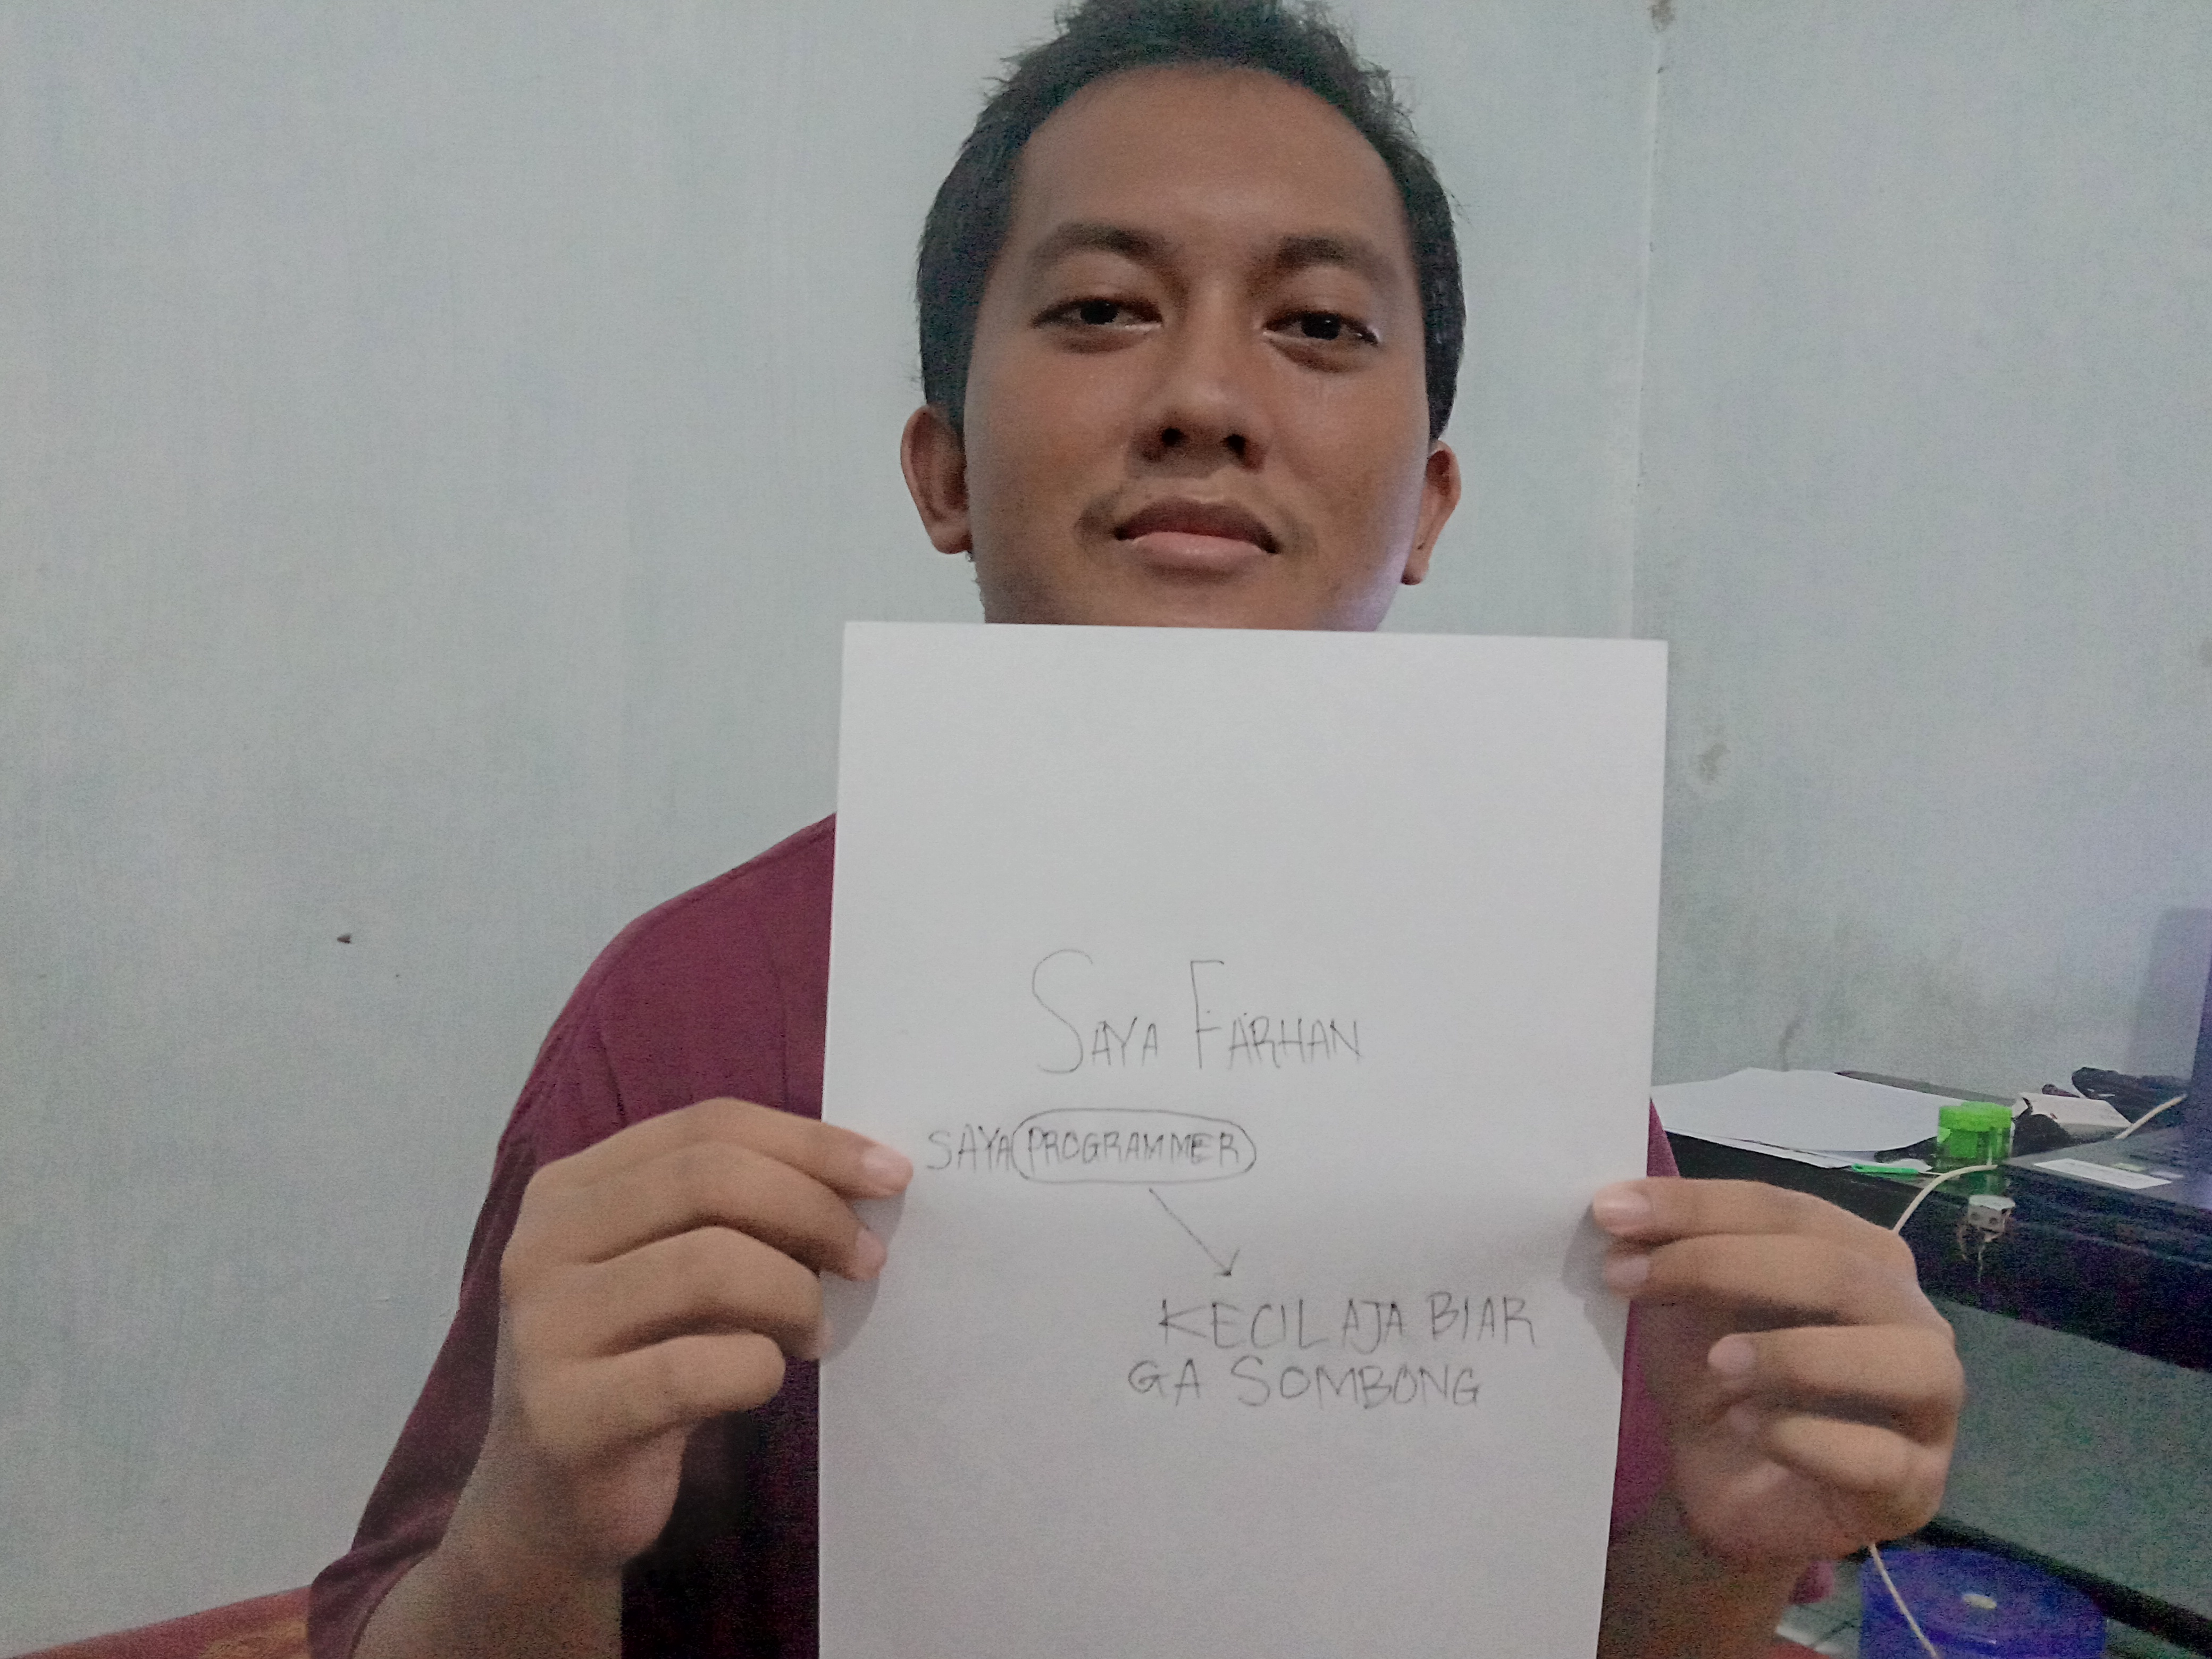 SAYA FARHAN
SAYA PROGRAMMER
KECIL AJA BIAR
GA SOMBONG